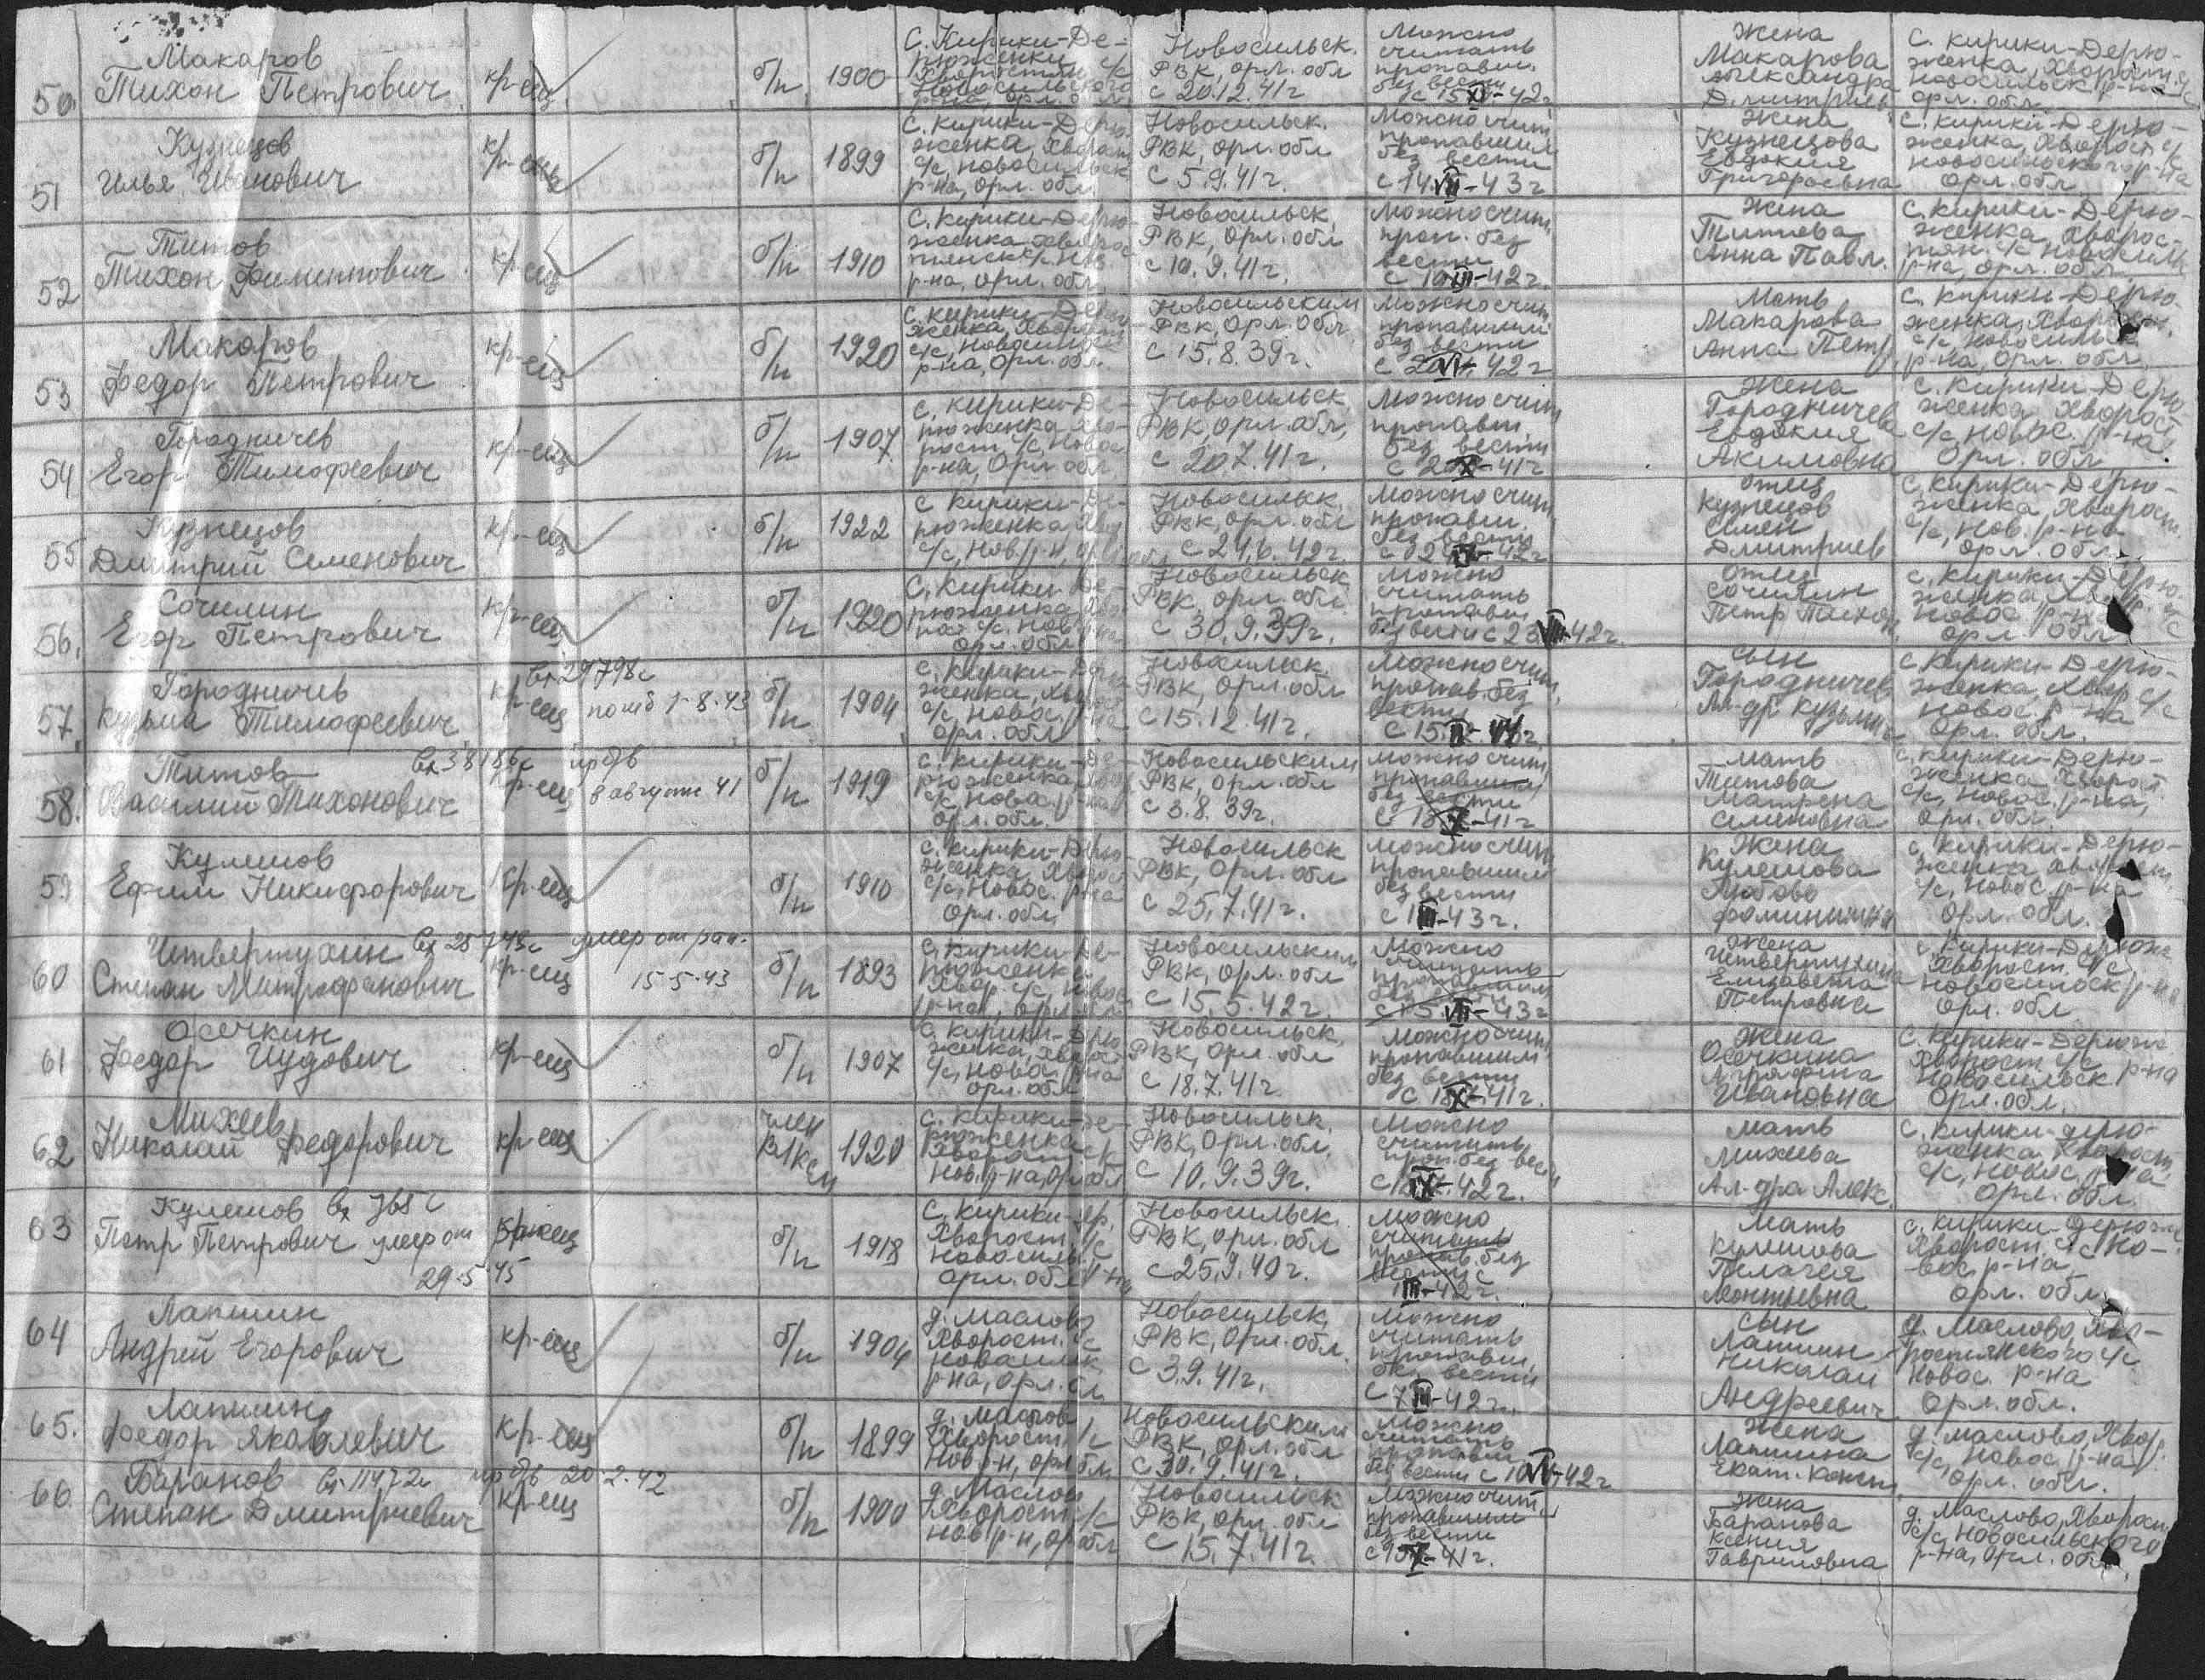 50.
Макаров
Тихон Петрович
кр-ец
б/п
1900
с. Кирики-Де-
рюженки с/с
Новосильского
р-на орл. обл
Новосильск.
РВК, орл. обл
с 20.12.41г
Можно
считать
пропавш.
без вести
Жена
Макарова
Александра
Дмитриев
с. Кирики-Дерю-
женка, Хворост. с/с
Новосильск р-на
орл. обл.
51
Кузнецов
Илья Иванович
кр-ец
б/п
1899
с. Кирики-Дерю-
женка, Хворост
с/с, Новосильск
р-на, орл. обл.
Новосильск.
РВК, орл. обл
с 5.9.41г.
Можно счит
пропавшим
без вести
с 14.VII-43г
Жена
Кузнецова
Евдокия
Григорьевна
с. Кирики-Дерю-
женка, Хворост с/с
Новосильского р-на
орл. обл
52
Титов
Тихон Филиппович
кр-ец
б/п
1910
с. Кирики-Дерю-
женка Хворос-
р-на, орл. обл.
Новосильск,
РВК, орл. обл
с 10.9.41г.
Можно счит.
проп. без
вести
Жена
Титова
Анна Павл.
с. Кирики-Дерю-
женка, Хворос-
тян. с/с Новосиль
р-на, орл. обл.
53
Макаров
Федор Петрович
кр-ец
б/п
1920
с. Кирики-Дерю-
женка, Хворост
с/с, Новосильск
р-на, Орл. обл.
Новосильским
РВК, Орл. Обл
с 15.8.39г.
Можно счит.
пропавшим
без вести
Мать
Макарова
Анна Петр.
с. Кирики-Дерю-
женка, Хворост.
с/с, Новосильск
р-на, Орл. обл.
54
Городничев
Егор Тимофеевич
кр-ец
б/п
1907
с. Кирики-Де-
рюженка, Хво-
рост с/с, Новос
р-на, Орл. обл
Новосильск,
РВК, Орл. обл,
с 20.7.41г.
Можно счит
пропавш.
без вести
Жена
Городничева
Евдокия
Акимовна
с. Кирики-Дерю-
женка, Хворост
с/с, Новос. р-на
Орл. обл
55
Кузнецов
Дмитрий Семенович
кр-ец
б/п
1922
с Кирики-Де-
рюженка Хвор
с/с, Нов. р-н, орл. обл.
Новосильск,
РВК, орл. обл
с 24.6.42г.
Можно счит
пропавш.
без вести
Отец
Кузнецов
Семен
Дмитриев
с. Кирики-Дерю-
женка, Хворост.
с/с, Нов. р-на
орл. обл.
56.
Сочилин
Егор Петрович
кр-ец
б/п
1920
с. Кирики-Де-
рюженка, Хво-
с/с, Нов. р-на
Орл. обл
Новосильск
РВК, орл. обл.
с 30.9.39г.
Можно
считать
пропавш
без вести с 23.VIII-42г.
Отец
Сочилин
Петр Тихон.
с. Кирики-Дерю-
женка, Хвор. с/с
Новос. р-на
орл. обл
57.
Городничев
Кузьма Тимофеевич
кр-ец
Вх 29798с
погиб 1-8-43
б/п
1904
с. Кирики-Дерю-
женка, Хворост
с/с, Новос. р-на
орл. обл
Новосильск.
РВК, Орл. обл
с 15.12.41г.
Можно счит
пропав. без
вести
Сын
Городничев
Ал-др Кузьмич
с. Кирики-Дерю-
женка, Хвор с/с
Новос. р-на
Орл. обл.
58.
Титов
Василий Тихонович
кр-ец
Вх 38186с
пр б/в
в августе 41
б/п
1919
с. Кирики-Де-
рюженка Хвор
с/с, Новос. р-на
орл. обл.
Новосильским
РВК, Орл. обл
с 3.8.39г.
Можно счит
пропавшим
без вести
с 18.X-41г
Мать
Титова
Матрена
Семеновна
с. Кирики-Дерю-
женка Хворост
с/с, Новос. р-на,
Орл. обл.
59
Кулешов
Ефим Никифорович
кр-ец
б/п
1910
с. Кирики-Дерю-
женка, Хворост
с/с, Новос. р-на
Орл. обл
Новосильск
РВК, Орл. обл
с 25.7.41г.
Можно счит
пропавшим
без вести
Жена
Кулешова
Любовь
Фоминична
с. Кирики-Дерю-
женка, Хворост
с/с, Новос. р-на
Орл. обл.
60
Четвертухин
Степан Митрофанович
кр-ец
Вх 25749с умер от ран.
15-5-43
б/п
1893
с. Кирики-Де-
рюженка
Хвор с/с, Новос.
р-на, орл. обл
Новосильским
РВК, Орл. обл
с 15.5.42г.
Можно
считать
пропавшим
без вести
Жена
Четвертухина
Елизавета
Петровна
с. Кирики-Дерюж.
Хворост. с/с,
Новосильск р-на
Орл. обл
61
Осечкин
Федор Иудович
кр-ец
б/п
1907
с. Кирики-Дерю-
женка, Хворос
с/с, Новос. р-на
орл. обл
Новосильск,
РВК, Орл. обл
с 18.7.41г
Можно счит
пропавшим
без вести
Жена
Осечкина
Агрофина
Ивановна
с. Кирики-Дерюж
Хворост с/с
Новосильск. р-на
Орл. обл.
62
Михеев
Николай Федорович
кр-ец
член
ВЛКСМ
1920
с. Кирики-Де-
рюженка
Нов. р-на, Орл. обл
Новосильск.
РВК, Орл. обл.
с 10.9.39г.
Можно
считать
проп. без вести
Мать
Михеева
Ал-дра Алекс.
с. Кирики-Дерю-
женка, Хворост,
с/с, Новос. р-на
Орл. обл.
63
Кулешов Вх 768с
Петр Петрович умер от
29-5-45
б/п
1918
с. Кирики-Др.
Хворост. с/с
Новосиль. р-на
Орл. обл.
Новосильск.
РВК, орл. обл
с 25.9.40г.
Можно
считать
пропав. без
вести с
III-42г.
Мать
Кулешова
Пелагея
с. Кирики-Дерюж.
Хворост. с/с Но-
вос. р-на,
Орл. обл.
64
Лапшин
Андрей Егорович
кр-ец
б/п
1904
д. Маслово
Хворост. с/с
р-на, орл. обл
Новосильск,
РВК, Орл. обл.
с 3.9.41г.
Можно
считать
пропавш.
без вести
Сын
Лапшин
Николай
Андреевич
д. Маслово, Хво-
ростянского с/с
Новос. р-на
Орл. обл.
65.
Лапшин
Федор Яковлевич
кр-ец
б/п
1899
д. Маслов
Хворост. с/с
Нов. р-н, орл. обл
Новосильским
РВК, Орл. обл
с 30.9.41г.
Можно
считать
пропавш
Жена
Лапшина
Екат. Конст.
д. Маслово, Хвор.
с/с, Новос. р-на
Орл. обл.
66.
Баранов Вх 11472с пр б/в 20-2-42
Степан Дмитриевич
кр-ец
б/п
1900
д. Маслово
Хворост. с/с
Нов р-н, орл обл
Новосильск
РВК, орл. обл
с 15.7.41г.
Можно счит.
пропавшим
без вести
Жена
Баранова
Ксения
Гавриловна
д. Маслово, Хворост
с/с, Новосильского
р-на, Орл. обл.